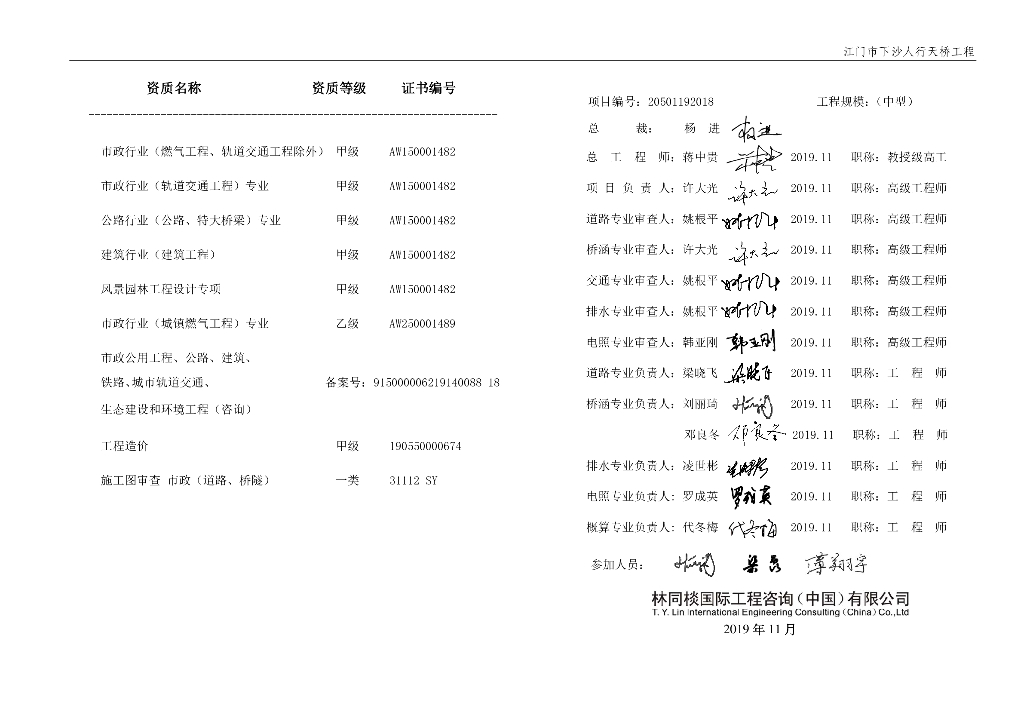 江门市下沙人行天桥工程
资质名称 资质等级 证书编号
市政行业（燃气工程、轨道交通工程除外） 甲级 AW150001482
市政行业（轨道交通工程）专业 甲级 AW150001482
公路行业（公路、特大桥梁）专业 甲级 AW150001482
建筑行业（建筑工程） 甲级 AW150001482
风景园林工程设计专项 甲级 AW150001482
市政行业（城镇燃气工程）专业 乙级 AW250001489
市政公用工程、公路、建筑、
铁路、城市轨道交通、 备案号：915000006219140088 18
生态建设和环境工程（咨询）
工程造价 甲级 190550000674
施工图审查 市政（道路、桥隧） 一类 31112 SY
项目编号：20501192018 工程规模：（中型）
总 裁： 杨 进
总 工 程 师：蒋中贵 2019.11 职称：教授级高工
项 目 负 责 人：许大光 许大光 2019.11 职称：高级工程师
道路专业审查人：姚根平 2019.11 职称：高级工程师
桥涵专业审查人：许大光 许大光 2019.11 职称：高级工程师
交通专业审查人：姚根平 2019.11 职称：高级工程师
排水专业审查人：姚根平 2019.11 职称：高级工程师
电照专业审查人：韩亚刚 韩亚刚 2019.11 职称：高级工程师
道路专业负责人：梁晓飞 梁晓飞 2019.11 职称：工 程 师
桥涵专业负责人：刘丽琦 2019.11 职称：工 程 师
邓良冬 邓良冬 2019.11 职称：工 程 师
排水专业负责人：凌世彬 2019.11 职称：工 程 师
电照专业负责人：罗成英 罗成英 2019.11 职称：工 程 师
概算专业负责人：代冬梅 代冬梅 2019.11 职称：工 程 师
参加人员：
林同棪国际工程咨询（中国）有限公司
T. Y. Lin International Engineering Consulting (China) Co.,Ltd
2019 年 11 月